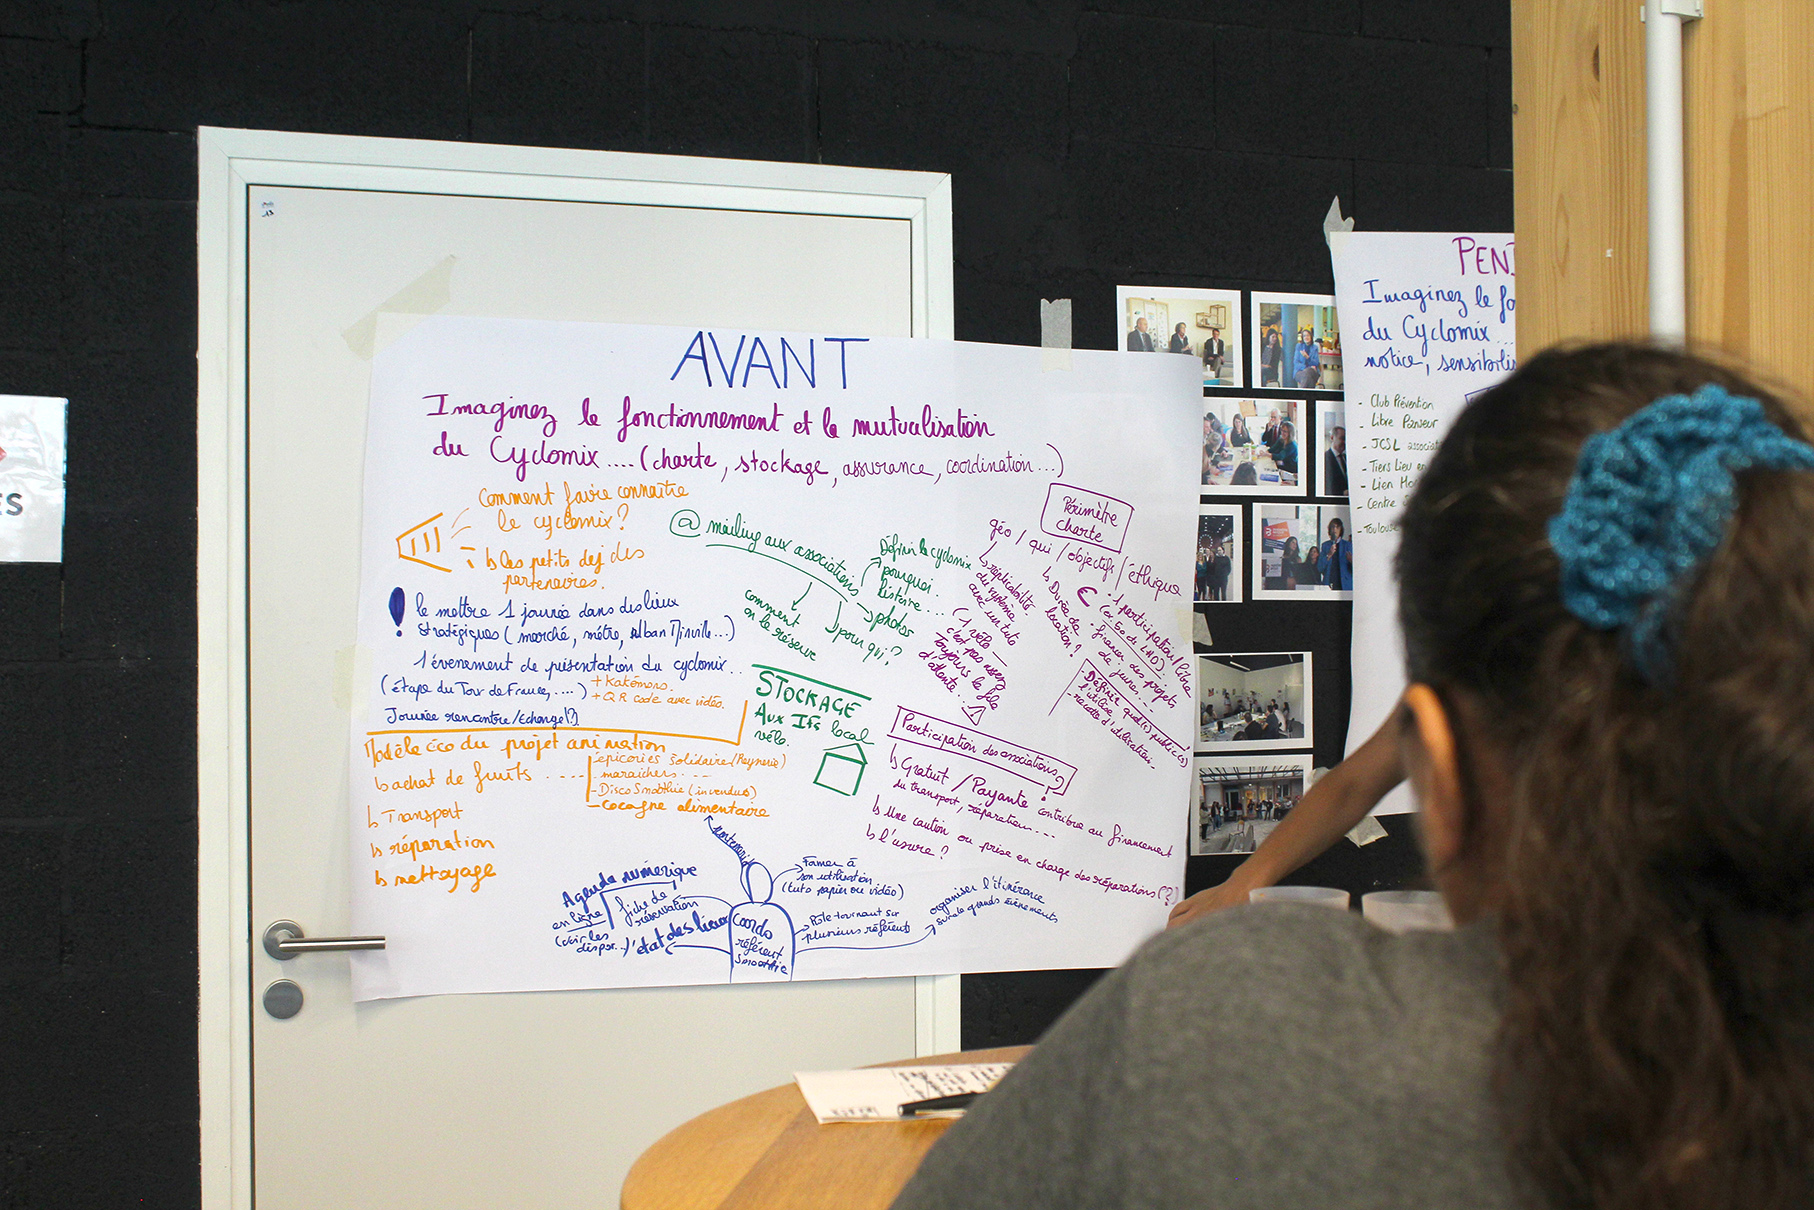 ES
AVANT
Imaginez le fonctionnement et la mutualisation
du Cyclomix .... (charte, stockage, assurance, coordination ...)
Comment faire connaître
le cyclomix ?
↳ Les petits dej des
partenaires.
! le mettre 1 journée dans des lieux
stratégiques (marché, métro, Alban Minville...)
1 évènement de présentation du cyclomix ...
(étape du Tour de France, ....)
+ Kakémonos.
+ QR code avec vidéo.
Journée rencontre/échange(?)
Modèle éco du projet animation
↳ achat de fruits ....
- épiceries solidaire (Reynerie)
- maraichers ...
- Disco Smoothie (invendus)
- cocagne alimentaire
↳ Transport
↳ réparation
↳ nettoyage
@ mailing aux associations
Définir le cyclomix
pourquoi
histoire ...
photos
pour qui ?
comment
on le réserve
STOCKAGE
Aux IFs local
vélo.
Périmètre
charte
géo / qui / objectifs / éthique
↳ réplicabilité
du système
avec un tuto
(1 vélo
c'est pas assez
Toujours la file
d'attente ...
↳ Durée de
location ?
€
• 1 participation/libre
• financer des projets
de jeunes ...
- Définir quel(s) public(s)
l'utilise
Participation des associations ?
↳ Gratuit / Payante ! contribue au financement
du transport, réparation ...
↳ Une caution ou prise en charge des réparations (?)
↳ l'usure ?
Agenda numérique
en ligne
(voir les
dispos...)
fiche de
réservation
l'état des lieux
Coordo
référent
smoothie
Former à
son utilisation
(tuto papier ou vidéo)
Rôle tournant sur
plusieurs référents
organiser l'itinérance
sur les grands évènements
PEN
Imaginez le fo
du Cyclomix ...
notice, sensibilis
- Club Prévention
- JCSL associat
- Tiers Lieu
- Lien
- Centre
- Toulouse